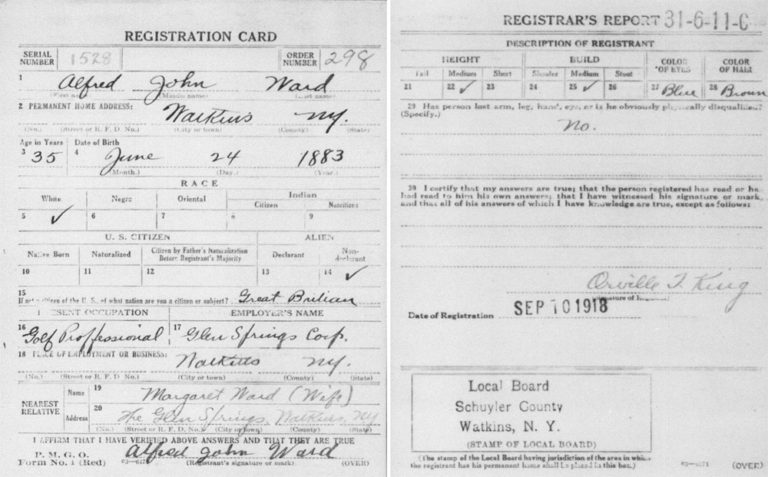 REGISTRATION CARD
SERIAL NUMBER 1528 ORDER NUMBER 298
1 Alfred John Ward
(First name) (Middle name) (Last name)
2 PERMANENT HOME ADDRESS:
Watkins NY.
(No.) (Street or R. F. D. No.) (City or town) (County) (State)
Age in Years Date of Birth
3 35 4 June 24 1883
(Month.) (Day.) (Year.)
RACE
White Negro Oriental Indian
Citizen Noncitizen
5 ✓ 6 7 8 9
U. S. CITIZEN ALIEN
Native Born Naturalized Citizen by Father's Naturalization Before Registrant's Majority Declarant Non-declarant
10 11 12 13 14 ✓
15
If not a citizen of the U. S., of what nation are you a citizen or subject? Great Britian
PRESENT OCCUPATION EMPLOYER'S NAME
16 Golf Proffessional 17 Glen Springs Corp.
18 PLACE OF EMPLOYMENT OR BUSINESS:
Watkins NY.
(No.) (Street or R. F. D. No.) (City or town) (County) (State)
NEAREST RELATIVE
Name 19 Margaret Ward (Wife)
Address 20 The Glen Springs, Watkins, NY
(No.) (Street or R. F. D. No.) (City or town) (County) (State)
I AFFIRM THAT I HAVE VERIFIED ABOVE ANSWERS AND THAT THEY ARE TRUE
P. M. G. O.
Form No. 1 (Red) Alfred John Ward
(Registrant's signature or mark) (OVER)
REGISTRAR'S REPORT 31-6-11-C
DESCRIPTION OF REGISTRANT
HEIGHT BUILD COLOR OF EYES COLOR OF HAIR
Tall Medium Short Slender Medium Stout
21 22 ✓ 23 24 25 ✓ 26 27 Blue 28 Brown
29 Has person lost arm, leg, hand, eye, or is he obviously physically disqualified?
(Specify.)
No.
30 I certify that my answers are true; that the person registered has read or has
had read to him his own answers; that I have witnessed his signature or mark,
and that all of his answers of which I have knowledge are true, except as follows:
Orville T. King
Date of Registration SEP 10 1918
Local Board
Schuyler County
Watkins, N. Y.
(STAMP OF LOCAL BOARD)
(The stamp of the Local Board having jurisdiction of the area in which
the registrant has his permanent home shall be placed in this box.)
(OVER)